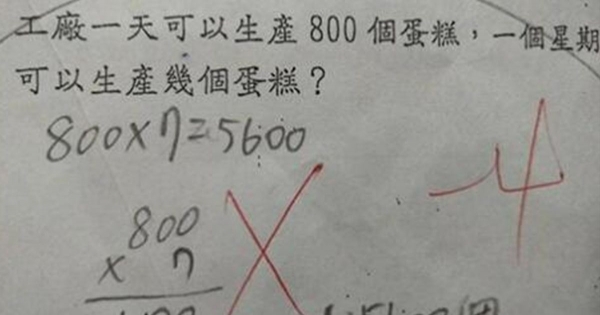 工廠一天可以生產 800 個蛋糕,一個星期
可以生產幾個蛋糕?
800×7=5600
-4
800
× 7